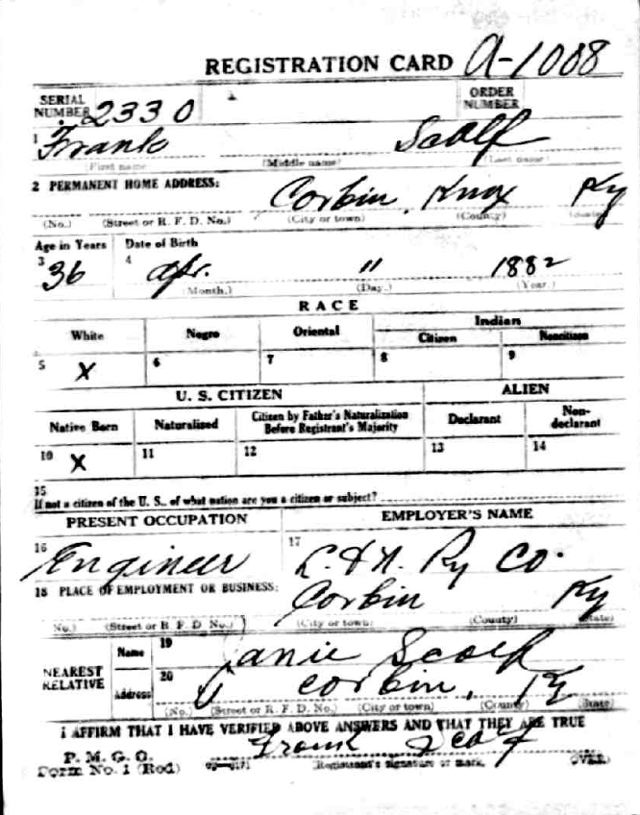 REGISTRATION CARD A-1008
SERIAL NUMBER 2330 ORDER NUMBER
1 Frank Scalf
(First name) (Middle name) (Last name)
2 PERMANENT HOME ADDRESS:
Corbin, Knox Ky
(No.) (Street or R. F. D. No.) (City or town) (County) (State)
Age in Years Date of Birth
3 36 4 Apr. 11 1882
(Month.) (Day.) (Year.)
RACE
White Negro Oriental Indian
Citizen Noncitizen
5 X 6 7 8 9
U. S. CITIZEN ALIEN
Native Born Naturalized Citizen by Father's Naturalization Before Registrant's Majority Declarant Non-declarant
10 X 11 12 13 14
15
If not a citizen of the U. S., of what nation are you a citizen or subject?
PRESENT OCCUPATION EMPLOYER'S NAME
16 Engineer 17 L. & N. Ry Co.
18 PLACE OF EMPLOYMENT OR BUSINESS:
Corbin Ky
(No.) (Street or R. F. D. No.) (City or town) (County) (State)
NEAREST RELATIVE
Name 19 Janie Scalf
Address 20 Corbin, Ky
(No.) (Street or R. F. D. No.) (City or town) (County) (State)
I AFFIRM THAT I HAVE VERIFIED ABOVE ANSWERS AND THAT THEY ARE TRUE
Frank Scalf
P. M. G. O.
Form No. 1 (Red) Registrant's signature or mark. (OVER)